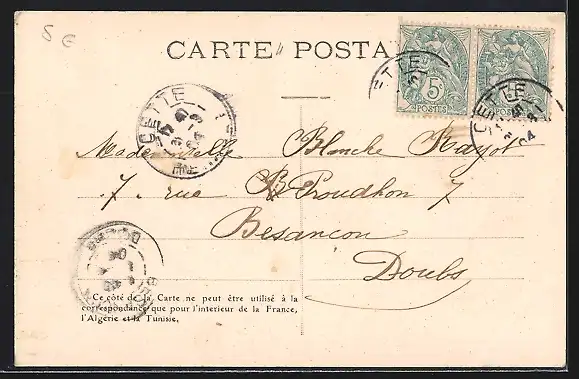 CARTE POSTA
5c
POSTES
CETTE
ETTE
CETTE
04
Mademoiselle Blanche Rayot
7. rue Proudhon 7
Besançon
Doubs
Ce côté de la Carte ne peut être utilisé à la
correspondance que pour l'interieur de la France,
l'Algérie et la Tunisie.